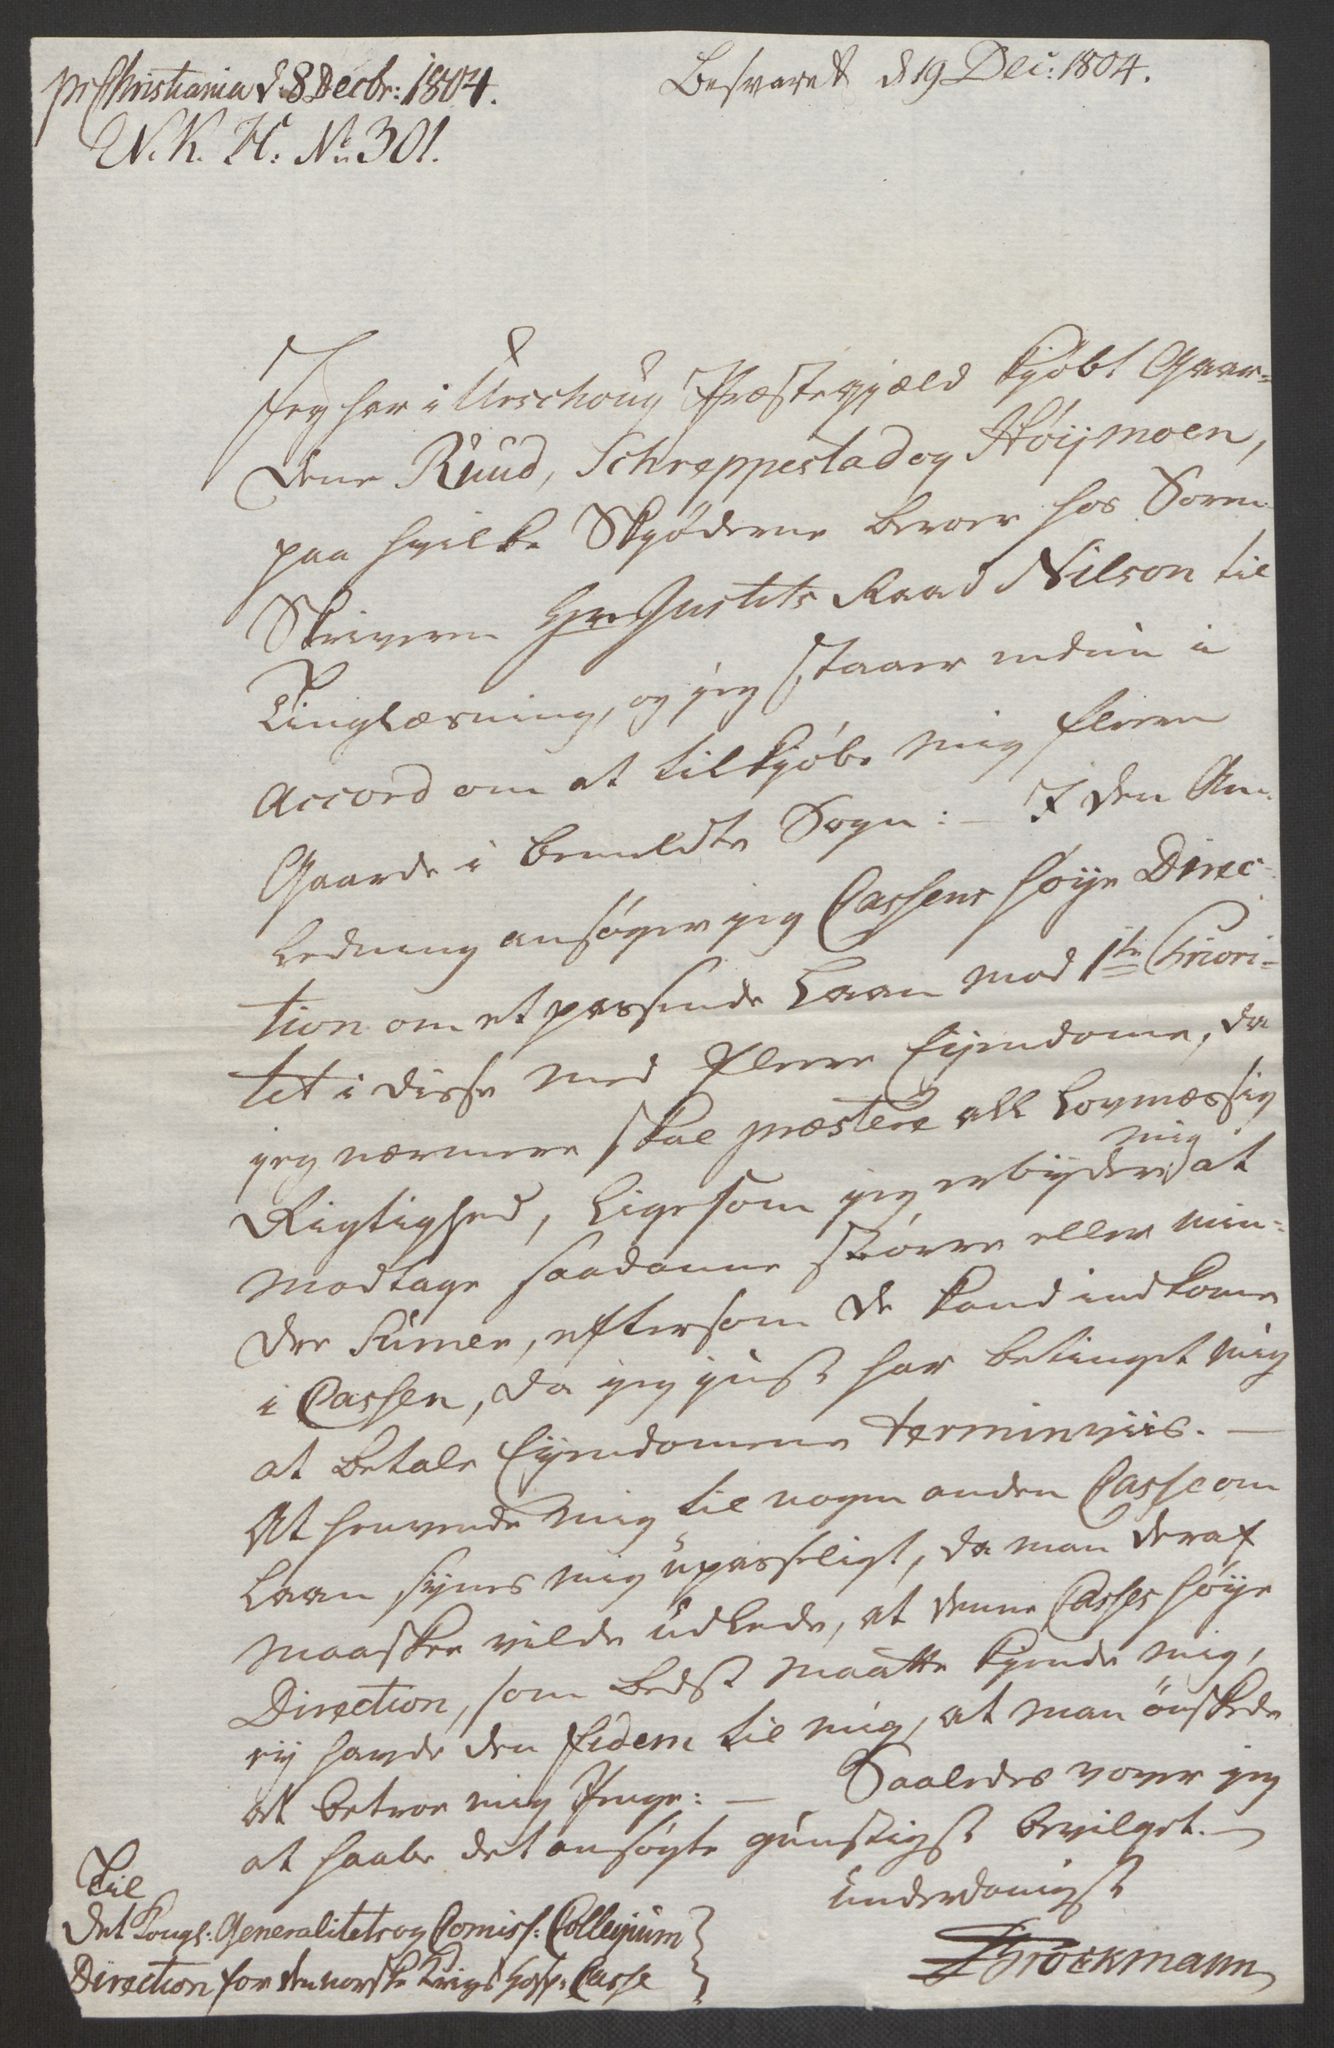 pr Christiania d: 8 Decbr: 1804.
Besvaret d 19 Dec: 1804.
N. K. H: No 301.
Jeg har i Urschoug Præstegjæld kjøbt Gaar=
dene Ruud, Schreppestad og Höijmoen,
paa hvilke Skjøderne beroer hos Soren
Skriveren Hr Justits Raad Nilson til
Tinglæsning, og jeg staaer endnu i
Accord om at tilkjøbe mig fleere
Gaarde i bemeldte Sogn: – I den An=
ledning ansøger jeg Cassens høije Direc=
tion om et passende Laan mod 1te Priori=
tet i disse med flere Eijendome, da
jeg nærmere skal præstere all Lovmæssig
Rigtighed, ligesom jeg erbijder mig at
modtage saadanne større eller min=
dre Sumer, eftersom de kand indkome
i Cassen, da jeg just har betinget mig
at betale Eijendomene terminviis. –
At henvende mig til nogen anden Casse om
Laan synes mig upasseligt, da man deraf
maaskee vilde udlede, at denne Casses høije
Direction, som bedst maatte kjende mig,
eij havde den fidem til mig, at man ønskede
at betroe mig Penge: – Saaledes vover jeg
at haabe det ansøgte gunstigst bevilget. –
underdanigst
Brockmann
Til
Det Kongl: Generalitets og Comiss: Collegium
Direction for den norske Krigs Hosp: Casse